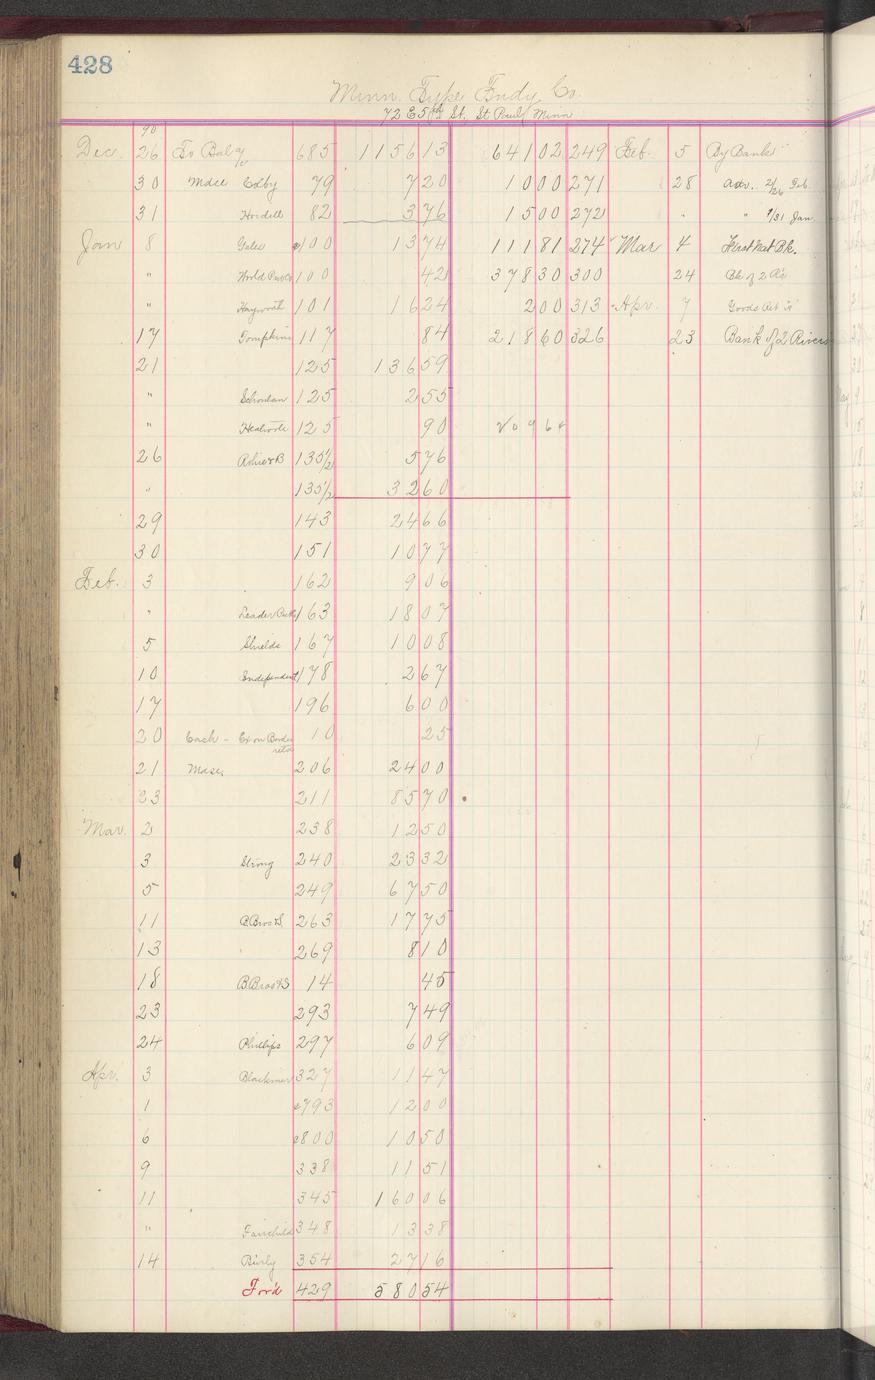 428
Minn. Type Fndy Co.
72 E 5th St. St Paul Minn
90
Dec. 26 To Bal a/c 685 1156 13 641 02 249 Feb. 5 By Bank
30 Mdse Colby 79 7 20 10 00 271 28 Adv. 2/26 Feb
31 Hordell 82 3 76 15 00 272 " " 1/31 Jan
Jan 8 Gales 100 13 74 111 81 274 Mar 4 First Nat Bk.
" World Pub Co 100 42 378 30 300 24 Bk of 2 Rs
" Hayworth 101 16 24 2 00 313 Apr. 7 Goods Ret'd
17 Tompkins 117 84 218 60 326 23 Bank of 2 Rivers
21 125 136 59
" 125 2 55
" 125 90
26 135½ 5 76
" 135½ 32 60
29 143 24 66
30 151 10 77
Feb. 3 162 9 06
" Leader 163 18 07
5 Shields 167 10 08
10 Independent 178 2 67
17 196 6 00
20 Cash - Ex on Border retd 10 25
21 Mdse. 206 24 00
23 211 85 70
Mar. 2 238 12 50
3 Strong 240 23 32
5 249 67 50
11 B. Bros & S. 263 17 75
13 269 8 10
18 B. Bros & S 14 45
23 293 7 49
24 Phillips 297 6 09
Apr. 3 Blackmer 327 11 47
1 793 12 00
6 800 10 50
9 338 11 51
11 345 160 06
" Fairchild 348 13 38
14 354 27 16
For'd 429 580 54